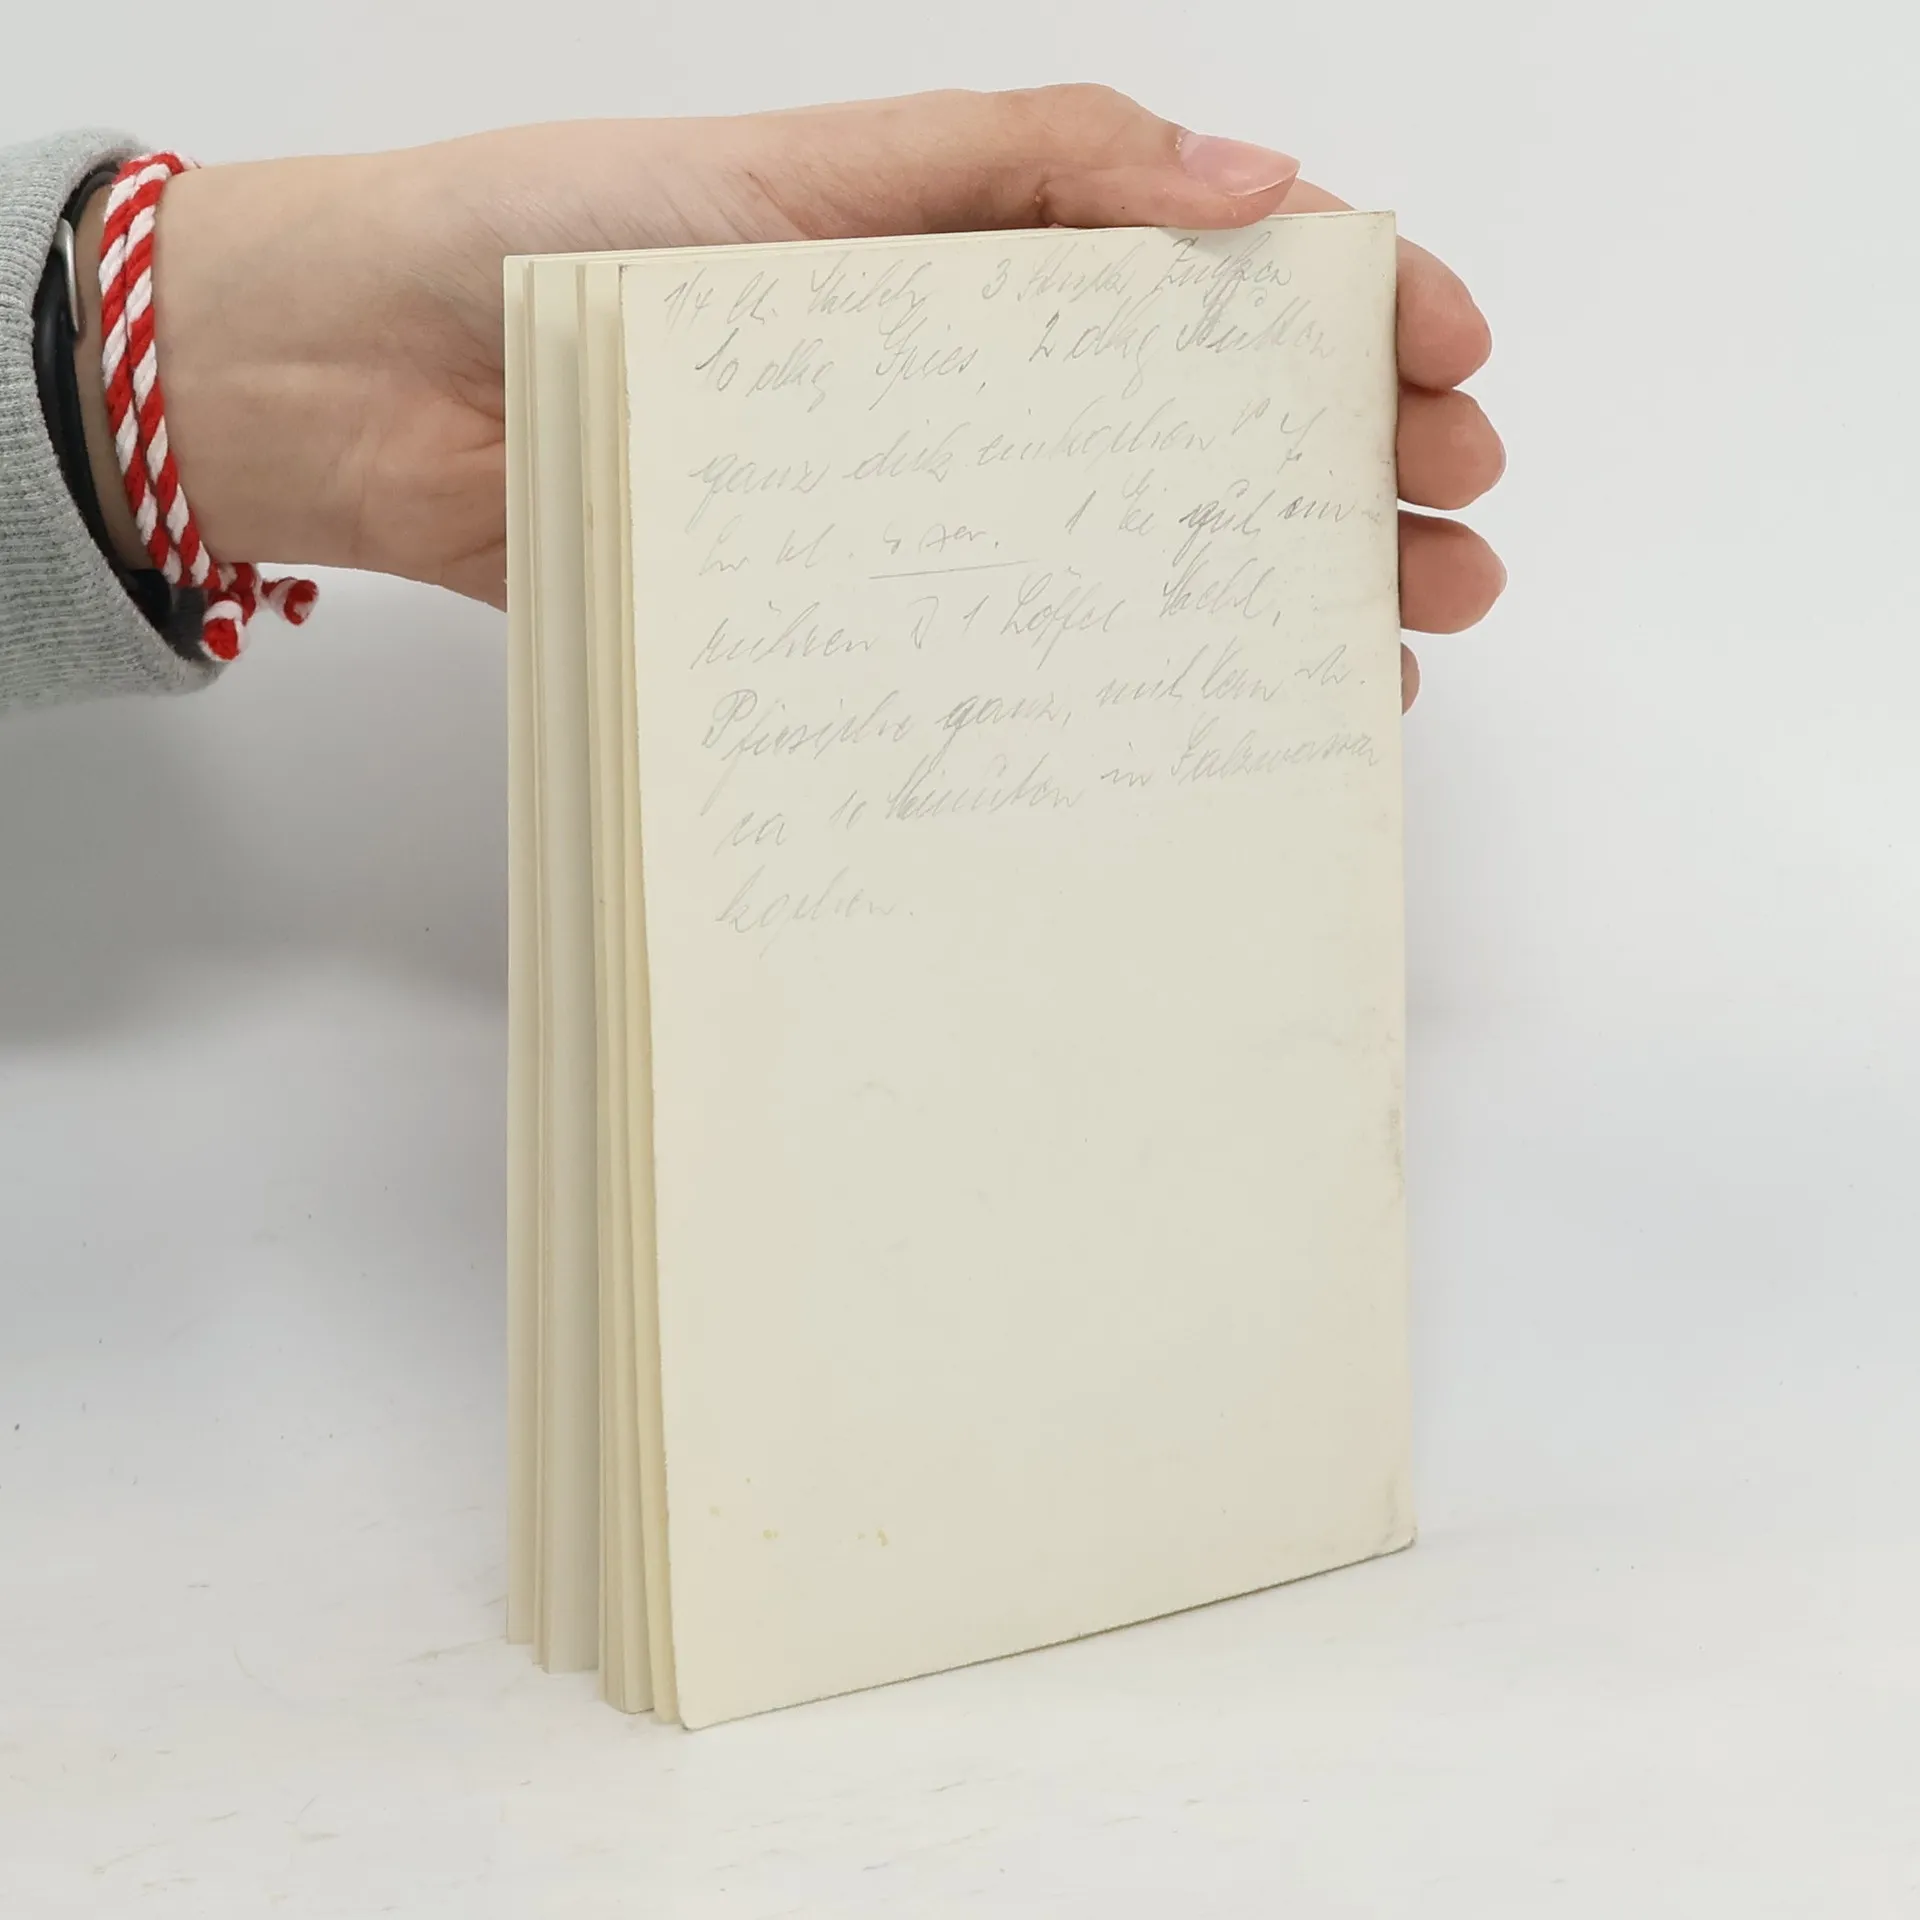 1/4 lt. Milch 3 Stück Zucker
10 dkg Gries, 2 dkg Butter
ganz dick einkochen
1 Ei gut ein-
rühren 1 Löffel Mehl,
Pfirsiche ganz, mit Kern
ca 10 Minuten in Salzwasser
kochen.